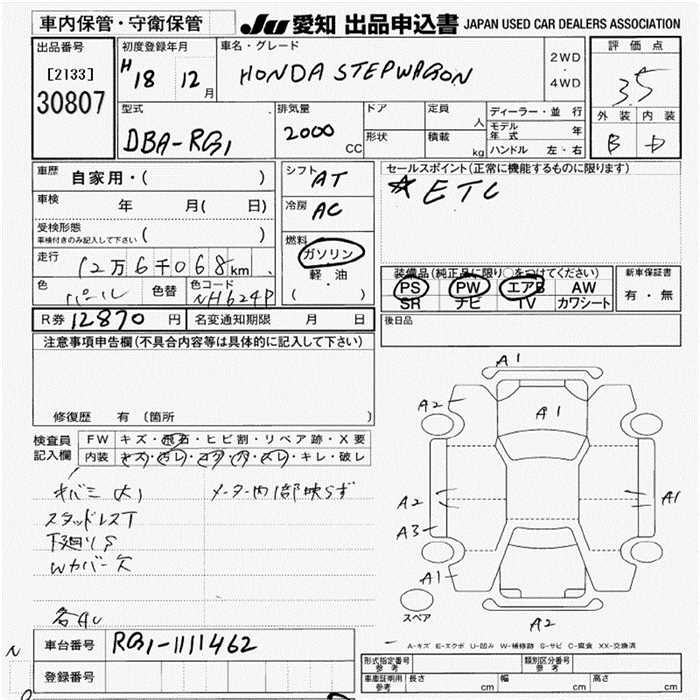 車内保管・守衛保管
JU 愛知 出品申込書 JAPAN USED CAR DEALERS ASSOCIATION
出品番号
[2133]
30807
初度登録年月
H18 12月
車名・グレード
HONDA STEPWAGON
2WD
・
4WD
評価点
3.5
外装 内装
B D
型式
DBA-RG1
排気量
2000 CC
ドア
形状
定員 人
積載 kg
ディーラー・並行
モデル年式 年
ハンドル 左・右
車歴 自家用・( )
車検 年 月( 日)
受検形態
車検付きのみ記入して下さい ( )
走行 12万6千068km
色 パール
色替
色コード
NH624P
シフト AT
冷房 AC
燃料
ガソリン
軽・油
( )
セールスポイント(正常に機能するものに限ります)
☆ETC
装備品(純正品に限り〇をつけてください)
PS PW エアB AW
SR ナビ TV カワシート
新車保証書
有・無
R券 12870 円
名変通知期限 月 日
後日品
注意事項申告欄(不具合内容等は具体的に記入して下さい)
修復歴 有 〔箇所
検査員記入欄
FW キズ・飛石・ヒビ割・リペア跡・X要
内装 キズ・汚レ・コゲ・穴・スレ・キレ・破レ
キバミ大)
メーター内1部映らず
スタッドレスT
下廻りS
Wカバー欠
各AU
A1
A2
A1
A2
A1
A3
A1
A2
スペア
A-キズ E-エクボ U-凹み W-補修跡 S-サビ C-腐食 XX-交換済
N
車台番号 RG1-1111462
登録番号
形式指定番号
参考
類別区分番号
参考
車庫証明用
参考
長さ cm
幅 cm
高さ cm